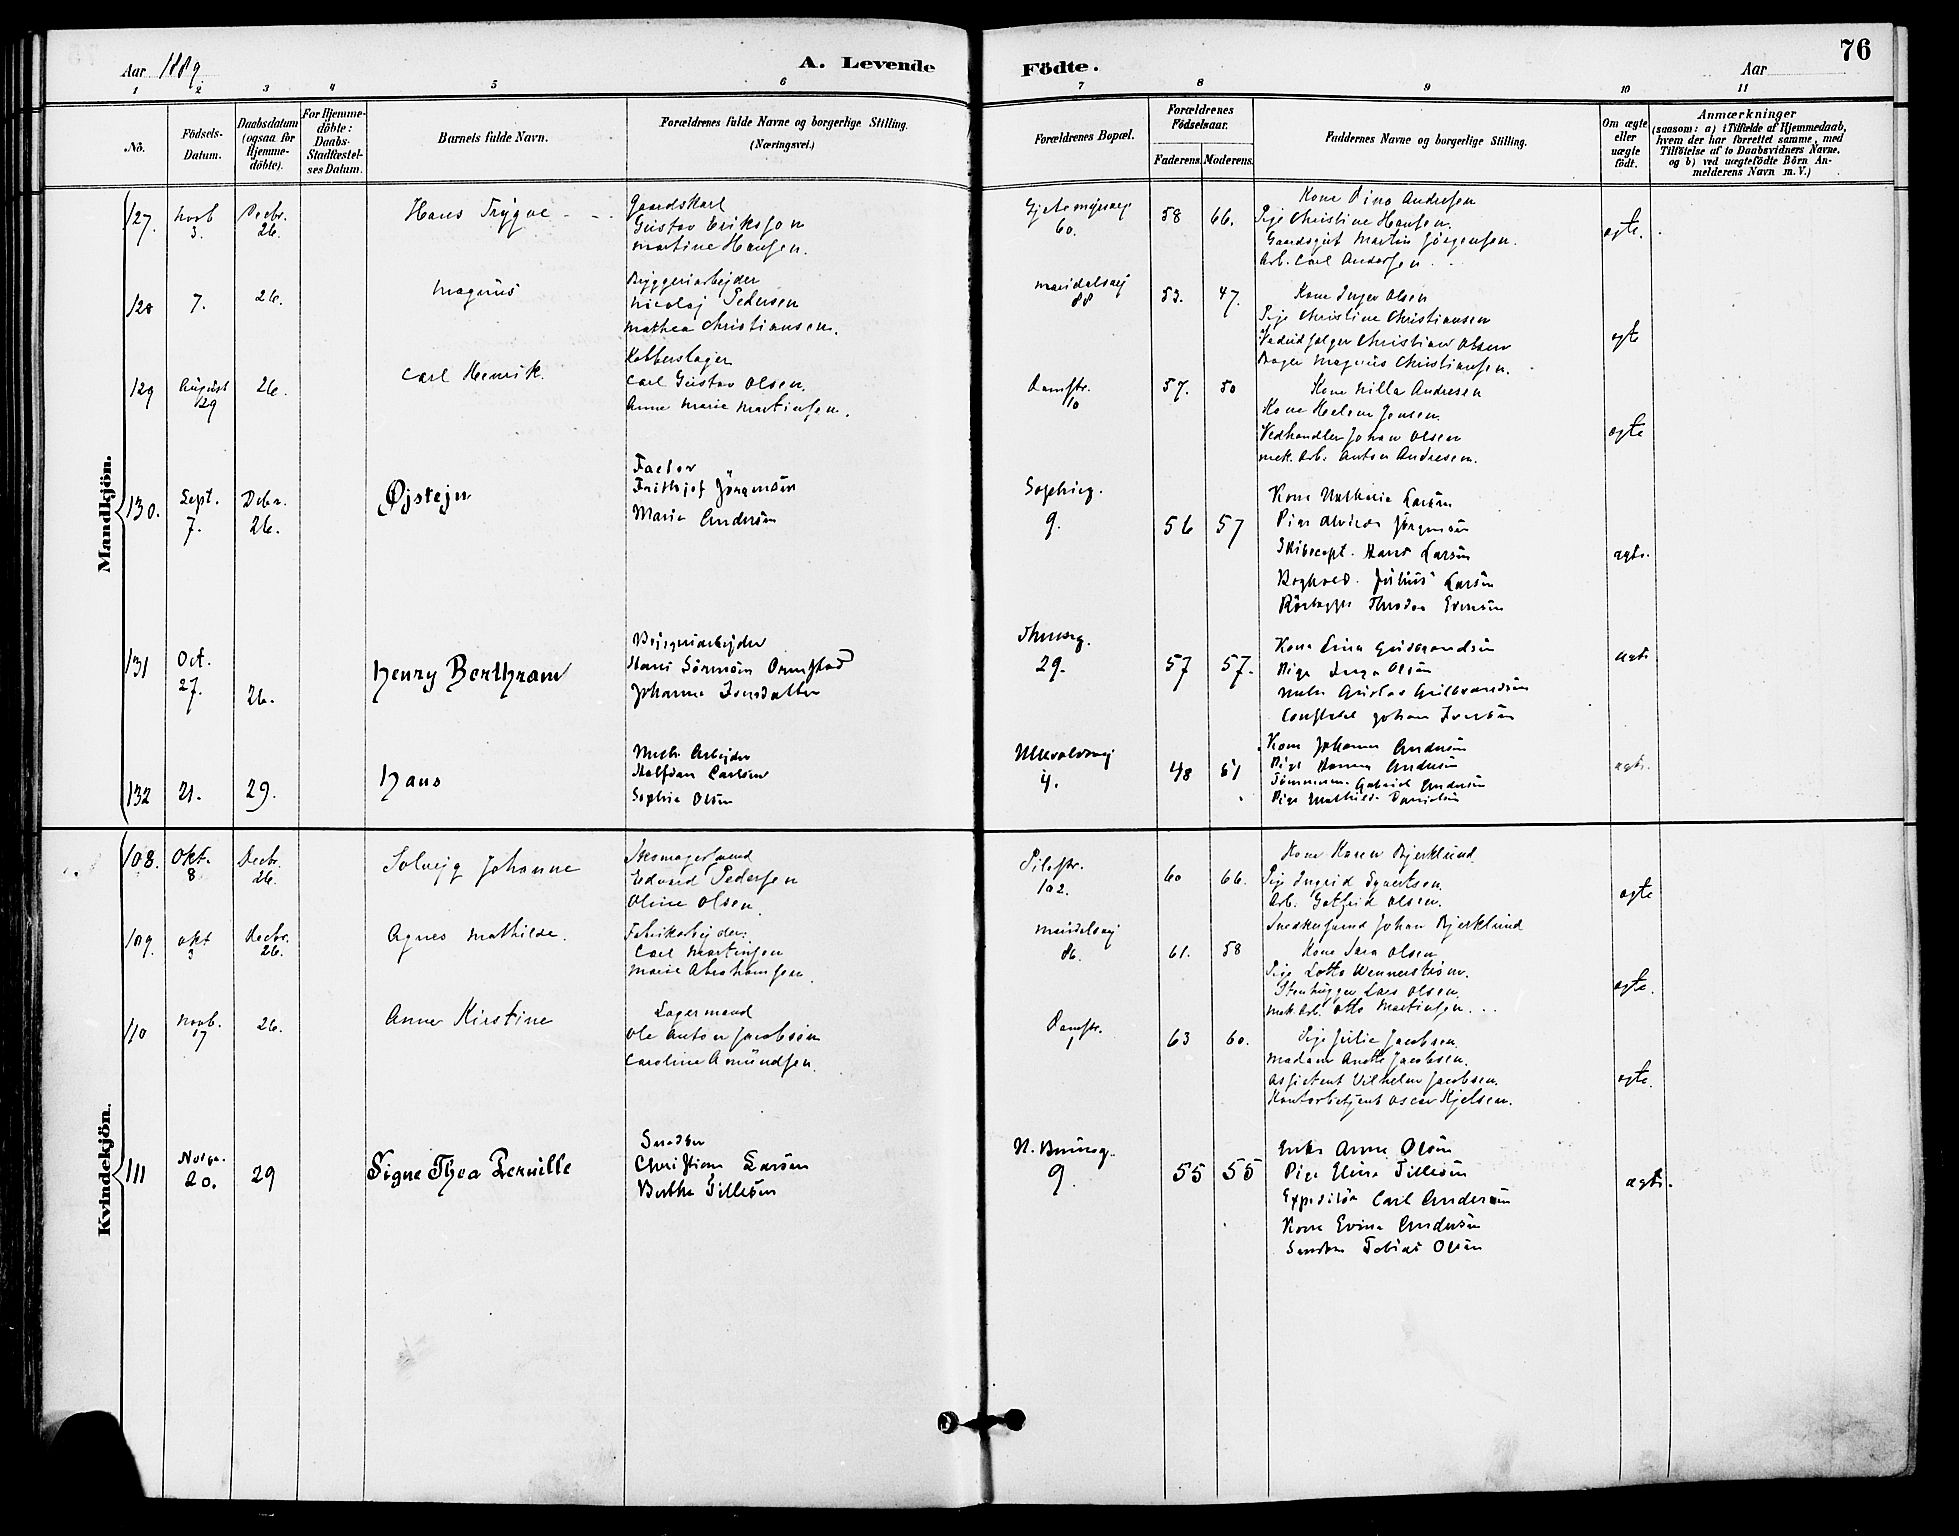 Aar 1889.
A. Levende Födte.
Aar
76
1 2 3 4 5 6 7 8 9 10 11
Nö.
Födsels-Datum.
Daabsdatum (ogsaa for Hjemme-döbte).
For Hjemme-döbte: Daabs-Stadfæstel-ses Datum.
Barnets fulde Navn.
Forældrenes fulde Navne og borgerlige Stilling. (Næringsvei.)
Forældrenes Bopæl.
Forældrenes Födselsaar.
Faderens. Moderens.
Faddernes Navne og borgerlige Stilling.
Om ægte eller uægte födt.
Anmærkninger (saasom: a) i Tilfælde af Hjemmedaab, hvem der har forrettet samme, med Tilföielse af to Daabsvidners Navne, og b) ved uægtefödte Börn An-melderens Navn m. V.)
Mandkjön.
127. Novb 3. Decbr. 26. Hans Trygve
Gaardskarl
Gustav Eriksson
Martine Hansen.
60.
58 66.
Kone Dina Andresen
Pige Christine Hansen.
Gaardsgut Martin Jörgensen.
Arb. Carl Andersen
ægte.
128 7. 26. Magnus
Bryggeriarbejder
Nicolaj Pedersen
Mathea Christiansen.
Maridalsvej 88
53. 47.
Kone Inger Olsen
Pige Christine Christiansen
Christian Olsen
Bager Magnus Christiansen.
ægte
129 August 29 26. Carl Henrik.
Kobberslager
Carl Gustav Olsen.
Anne Marie Martinsen.
Damstr. 10
57. 50
Kone Milla Andresen
Kone Helene Jensen.
Vedhandler Johan Olsen
mek. Arb. Anton Andresen.
ægte
130. Sept. 7. Debr. 26. Øjstejn
Factor
Frithjof Jörgensen
Marie Andersen
Sophieg. 9.
56 57
Kone Mathilde Larsen
Pige Alvilde Jörgensen
Skibscapt. Hans Larsen
Boghold. Julius Larsen
Thodor Evensen
ægte.
131 Oct. 27. 26. Henry Berthram
Bryggeriarbejder
Hans Sörensen Ormstad
Johanne Iversdatter
29.
57 57.
Kone Lina Gulbrandsen
Pige Inga Olsen
Nicolai Gulbrandsen
Constabel Johan Iversen
ægte
132 21. 29. Hans
Mek. Arbejder
Halfdan Carlsen
Sophie Olsen
Ullevoldsvej 4.
48 51
Kone Johanne Andersen
Pige Hanna Andersen
Tömmerm. Gabriel Andersen
Pige Mathilde Danielsen
ægte.
Kvindekjön.
108. Okt. 8 Decbr. 26. Solvejg Johanne
Skomagersvend
Edvard Pedersen
Oline Olsen.
Pilestr. 102.
60 66.
Kone Karen Bjerklund
Pige Ingrid Syvertsen.
Arb. Gotfrid Olsen.
Snedkersvend Johan Bjerklund
ægte
109. Okt 3 Decbr. 26. Agnes Mathilde.
Fabrikarbejder:
Carl Martinsen
Marie Abrahamsen.
Maridalsvej 86.
61. 58
Kone Sara Olsen
Pige Lotta Wennerström.
Stenhugger Lars Olsen.
mek. Arb. Otto Martinsen.
ægte.
110 Novb. 17 26. Anna Kirstine
Lagermand
Ole Anton Jacobsen
Caroline Amundsen.
Damstr. 1
63 60.
Pige Julie Jacobsen.
Madam Anette Jacobsen.
Assistent Vilhelm Jacobsen.
Kontorbetjent Oscar Kjelsen.
ægte.
111 20. 29 Signe Thea Pernille
Snedker
Christian Larsen
Berthe Tillesen
N. Bruung. 9.
55 55
Enke Anne Olsen
Pige Elina Tillesen
Expeditör Carl Andersen
Kone Evina Andersen
Snedker Tobias Olsen
ægte.